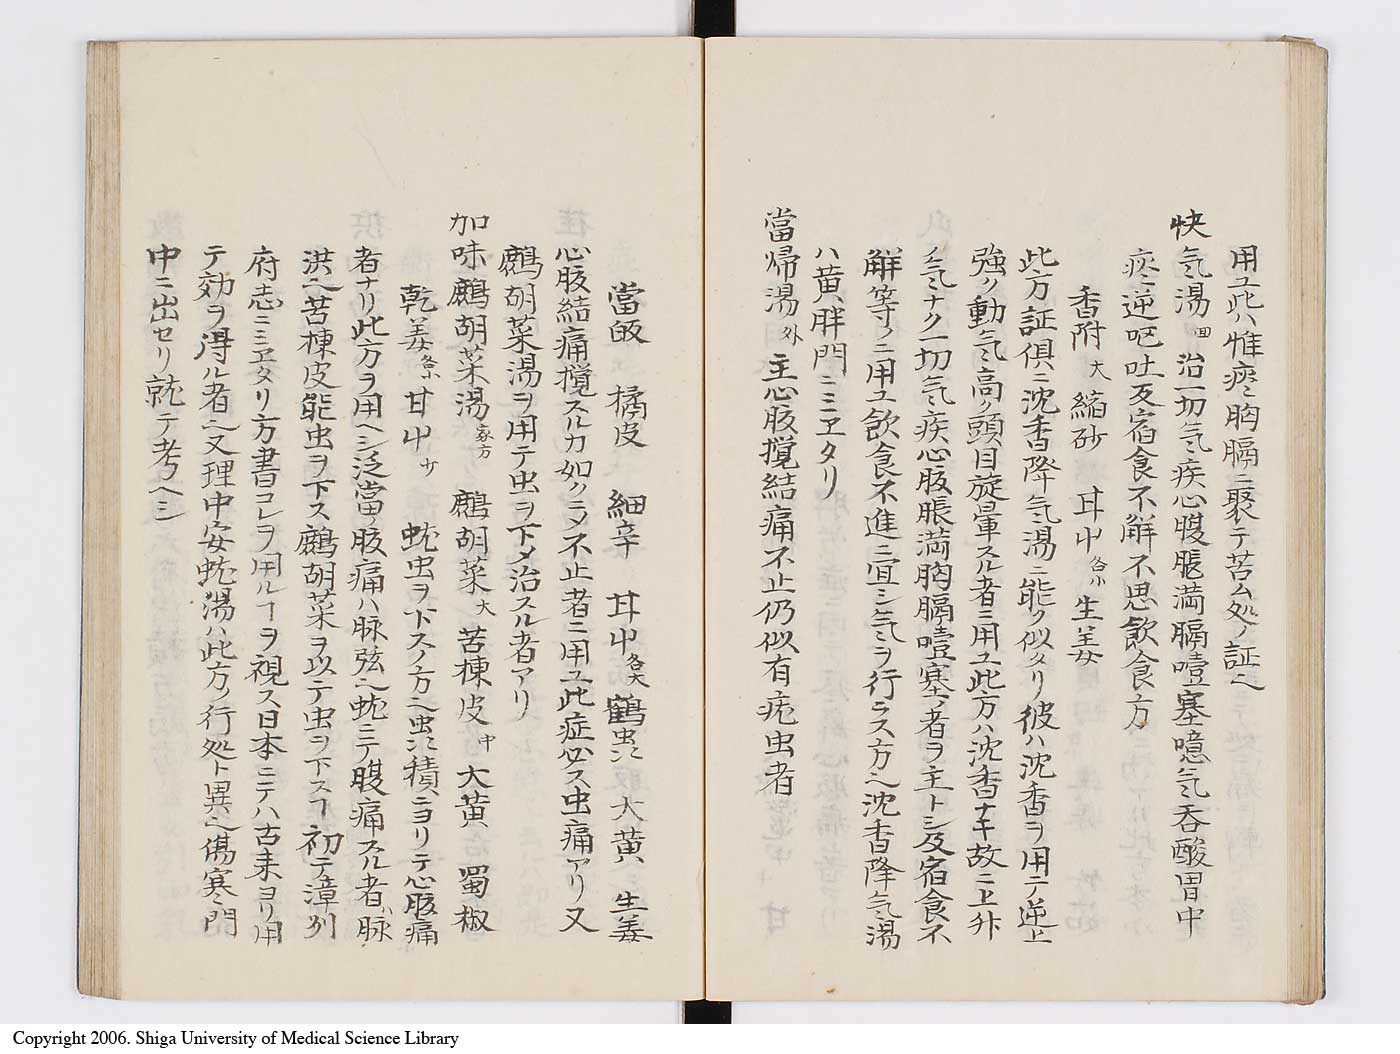 用ユ此ハ惟痰胸膈ニ聚テ苦ム処ノ証ヘ
快気湯 回 治一切気疾心腹脹満膈噎塞噫気呑酸胃中
痰逆呕吐及宿食不解不思飲食方
香附大 縮砂 甘艸各小 生姜
此方証俱ニ沈香降気湯ニ能ク似タリ彼ハ沈香ヲ用テ逆上
強ク動気高ク頭目旋暈スル者ニ用ユ此方ハ沈香ナキ故ニ上升
ノ気ナク一切気疾心腹脹満胸膈噎塞ノ者ヲ主トシ及宿食不
解等ノニ用ユ飲食不進ニ宜シ気ヲ行ラス方ヘ沈香降気湯
ハ黄胖門ニミヱタリ
當帰湯 外 主心腹攪結痛不止仍似有疣虫者
當皈 橘皮 細辛 甘艸各大 鶴虫 大黄 生姜
心腹結痛攪スルカ如クシテ不止者ニ用ユ此症必ス虫痛アリ又
鷓胡菜湯ヲ用テ虫ヲ下メ治スル者アリ
加味鷓胡菜湯 家方 鷓胡菜大 苦棟皮中 大黄 蜀椒
乾姜各ホ 甘艸少 蚘虫ヲ下スノ方ヘ虫積ニヨリテ心腹痛
者ナリ此方ヲ用ヘシ泛當ノ腹痛ハ脉弦ヘ蚘ニテ腹痛スル者ハ脉
洪ヘ苦棟皮能虫ヲ下ス鷓胡菜ヲ以テ虫ヲ下スヿ初テ漳列
府志ニミヱタリ方書コレヲ用ルヿヲ視ス日本ニテハ古来ヨリ用
テ効ヲ得ル者ヘ又理中安蚘湯ハ此方ノ行処ト異ヘ傷寒門
中ニ出セリ就テ考ヘシ
Copyright 2006. Shiga University of Medical Science Library